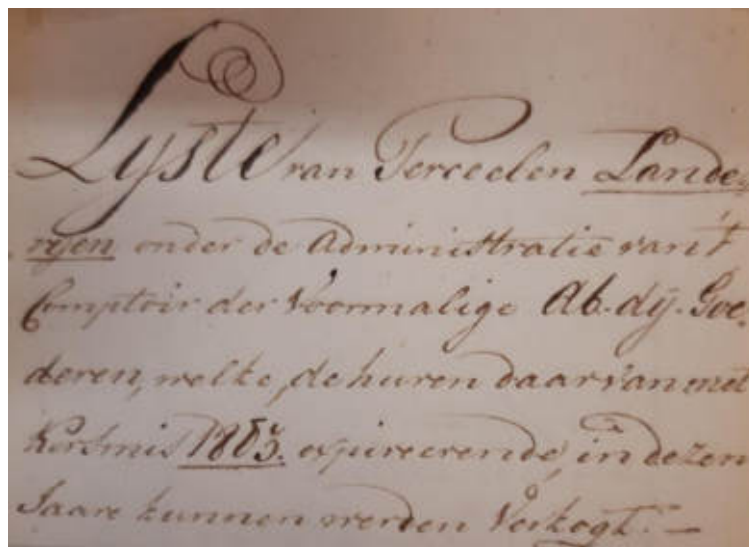 Lyste van Perceelen Lande-
ryen onder de Administratie van 't
Comptoir der Voormalige Ab-dij-Goe-
deren, welke, de huren daar van met
Kersmis 1803. expireerende, in dezen
Jaare kunnen werden Verkogt. —